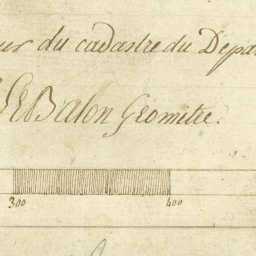 ur du cadastre du Depa
Balon Géomètre.
300 400